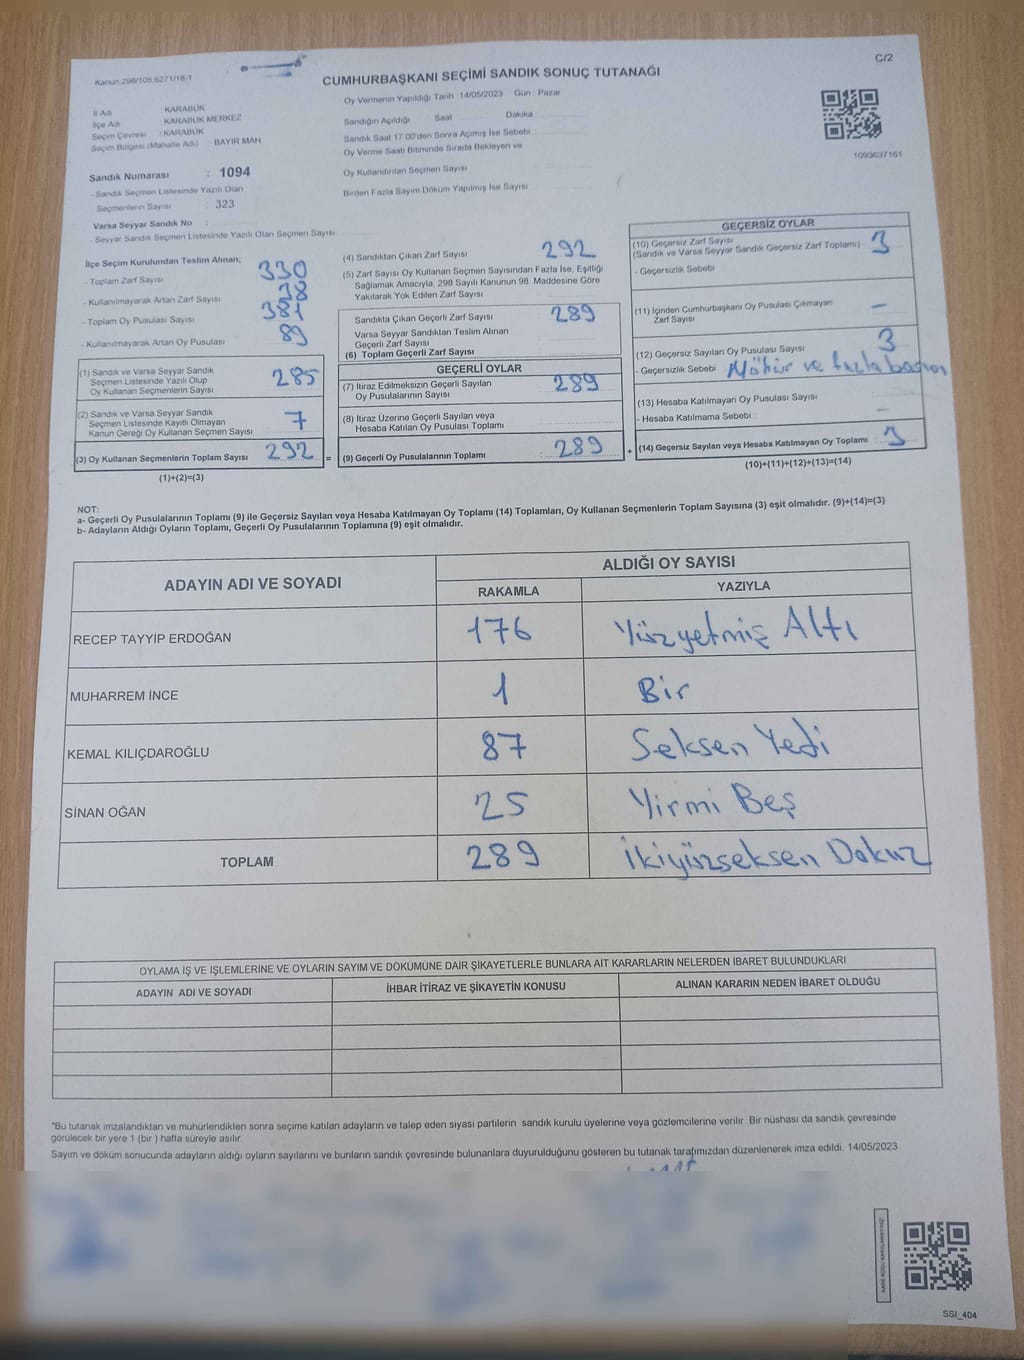 Kanun:298/105,6271/16-1
C/2
CUMHURBAŞKANI SEÇİMİ SANDIK SONUÇ TUTANAĞI
İl Adı KARABÜK
İlçe Adı KARABÜK MERKEZ
Seçim Çevresi : KARABÜK
Seçim Bölgesi (Mahalle Adı) BAYIR MAH.
Sandık Numarası : 1094
- Sandık Seçmen Listesinde Yazılı Olan
Seçmenlerin Sayısı : 323
Varsa Seyyar Sandık No
- Seyyar Sandık Seçmen Listesinde Yazılı Olan Seçmen Sayısı
Oy Vermenin Yapıldığı Tarih : 14/05/2023 Gün : Pazar
Sandığın Açıldığı Saat Dakika
Sandık Saat 17.00'den Sonra Açılmış İse Sebebi
Oy Verme Saati Bitiminde Sırada Bekleyen ve
Oy Kullandırılan Seçmen Sayısı
Birden Fazla Sayım Döküm Yapılmış İse Sayısı
1093637161
İlçe Seçim Kurulundan Teslim Alınan;
- Toplam Zarf Sayısı 330
- Kullanılmayarak Artan Zarf Sayısı 38
- Toplam Oy Pusulası Sayısı 381
- Kullanılmayarak Artan Oy Pusulası 89
(1) Sandık ve Varsa Seyyar Sandık
Seçmen Listesinde Yazılı Olup
Oy Kullanan Seçmenlerin Sayısı 285
(2) Sandık ve Varsa Seyyar Sandık
Seçmen Listesinde Kayıtlı Olmayan
Kanun Gereği Oy Kullanan Seçmen Sayısı 7
(3) Oy Kullanan Seçmenlerin Toplam Sayısı 292 =
(1)+(2)=(3)
(4) Sandıktan Çıkan Zarf Sayısı 292
(5) Zarf Sayısı Oy Kullanan Seçmen Sayısından Fazla İse, Eşitliği
Sağlamak Amacıyla, 298 Sayılı Kanunun 98. Maddesine Göre
Yakılarak Yok Edilen Zarf Sayısı
Sandıkta Çıkan Geçerli Zarf Sayısı 289
Varsa Seyyar Sandıktan Teslim Alınan
Geçerli Zarf Sayısı
(6) Toplam Geçerli Zarf Sayısı
GEÇERLİ OYLAR
(7) İtiraz Edilmeksizin Geçerli Sayılan
Oy Pusulalarının Sayısı 289
(8) İtiraz Üzerine Geçerli Sayılan veya
Hesaba Katılan Oy Pusulası Toplamı
(9) Geçerli Oy Pusulalarının Toplamı 289 +
GEÇERSİZ OYLAR
(10) Geçersiz Zarf Sayısı
(Sandık ve Varsa Seyyar Sandık Geçersiz Zarf Toplamı) 3
- Geçersizlik Sebebi
(11) İçinden Cumhurbaşkanı Oy Pusulası Çıkmayan
Zarf Sayısı –
(12) Geçersiz Sayılan Oy Pusulası Sayısı 3
- Geçersizlik Sebebi Mühür ve fazla
(13) Hesaba Katılmayan Oy Pusulası Sayısı
- Hesaba Katılmama Sebebi –
(14) Geçersiz Sayılan veya Hesaba Katılmayan Oy Toplamı 3
(10)+(11)+(12)+(13)=(14)
NOT:
a- Geçerli Oy Pusulalarının Toplamı (9) ile Geçersiz Sayılan veya Hesaba Katılmayan Oy Toplamı (14) Toplamları, Oy Kullanan Seçmenlerin Toplam Sayısına (3) eşit olmalıdır. (9)+(14)=(3)
b- Adayların Aldığı Oyların Toplamı, Geçerli Oy Pusulalarının Toplamına (9) eşit olmalıdır.
ADAYIN ADI VE SOYADI
ALDIĞI OY SAYISI
RAKAMLA YAZIYLA
RECEP TAYYİP ERDOĞAN 176 Yüzyetmiş Altı
MUHARREM İNCE 1 Bir
KEMAL KILIÇDAROĞLU 87 Seksen Yedi
SİNAN OĞAN 25 Yirmi Beş
TOPLAM 289 İkiyüzseksen Dokuz
OYLAMA İŞ VE İŞLEMLERİNE VE OYLARIN SAYIM VE DÖKÜMÜNE DAİR ŞİKAYETLERLE BUNLARA AİT KARARLARIN NELERDEN İBARET BULUNDUKLARI
ADAYIN ADI VE SOYADI İHBAR İTİRAZ VE ŞİKAYETİN KONUSU ALINAN KARARIN NEDEN İBARET OLDUĞU
*Bu tutanak imzalandıktan ve mühürlendikten sonra seçime katılan adayların ve talep eden siyasi partilerin sandık kurulu üyelerine veya gözlemcilerine verilir. Bir nüshası da sandık çevresinde
görülecek bir yere 1 (bir ) hafta süreyle asılır.
Sayım ve döküm sonucunda adayların aldığı oyların sayılarını ve bunların sandık çevresinde bulunanlara duyurulduğunu gösteren bu tutanak tarafımızdan düzenlenerek imza edildi. 14/05/2023
SSI_404